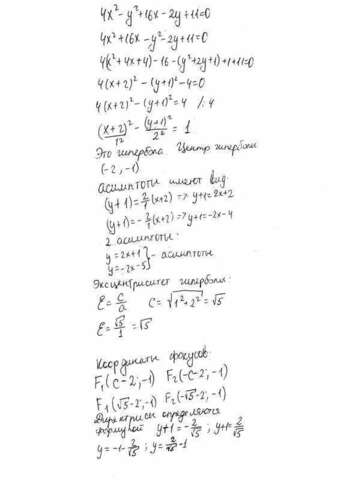 4x²-y²+16x-2y+11=0
4x²+16x-y²-2y+11=0
4(x²+4x+4)-16-(y²+2y+1)+1+11=0
4(x+2)²-(y+1)²-4=0
4(x+2)²-(y+1)²=4 /:4
(x+2)²/1² - (y+1)²/2² = 1
Это гипербола. Центр гиперболы
(-2,-1)
асимптоты имеют вид:
(y+1)=2/1(x+2) => y+1=2x+2
(y+1)=-2/1(x+2) => y+1=-2x-4
2 асимптоты:
y=2x+1
y=-2x-5 } - асимптоты
Эксцентриситет гиперболы:
ε=c/a c=√1²+2²=√5
ε=√5/1=√5
Координаты фокусов:
F₁(c-2;-1) F₂(-c-2;-1)
F₁(√5-2;-1) F₂(-√5-2;-1)
Директрисы определяются
формулой y+1=-2/√5; y+1=2/√5
y=-1-2/√5; y=2/√5-1